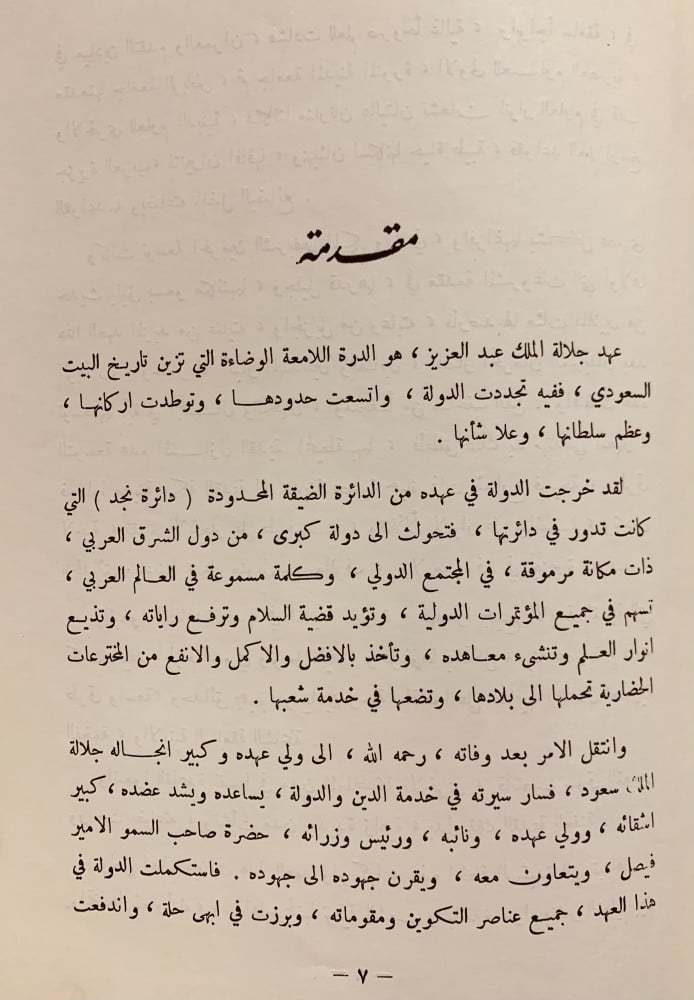 مقدمته
عهد جلالة الملك عبد العزيز ، هو الدرة اللامعة الوضاءة التي تزين تاريخ البيت
السعودي ، ففيه تجددت الدولة ، واتسعت حدودهـا ، وتوطدت اركانها ،
وعظم سلطانها ، وعلا شأنها .
لقد خرجت الدولة في عهده من الدائرة الضيقة المحدودة ( دائرة نجد ) التي
كانت تدور في دائرتها ، فتحولت الى دولة كبرى ، من دول الشرق العربي ،
ذات مكانة مرموقة ، في المجتمع الدولي ، وكلمة مسموعة في العالم العربي ،
تسهم في جميع المؤتمرات الدولية ، وتؤيد قضية السلام وترفع راياته ، وتذيع
انوار العلم وتنشىء معاهده ، وتأخذ بالافضل والاكمل والانفع من المخترعات
الحضارية تحملها الى بلادها ، وتضعها في خدمة شعبها .
وانتقل الامر بعد وفاته ، رحمه الله ، الى ولي عهده وكبير انجاله جلالة
الملك سعود ، فسار سيرته في خدمة الدين والدولة ، يساعده ويشد عضده ، كبير
اشقائه ، وولي عهده ، ونائبه ، ورئيس وزرائه ، حضرة صاحب السمو الامير
فيصل ، ويتعاون معه ، ويقرن جهوده الى جهوده . فاستكملت الدولة في
هذا العهد ، جميع عناصر التكوين ومقوماته ، وبرزت في ابهى حلة ، واندفعت
— ٧ —